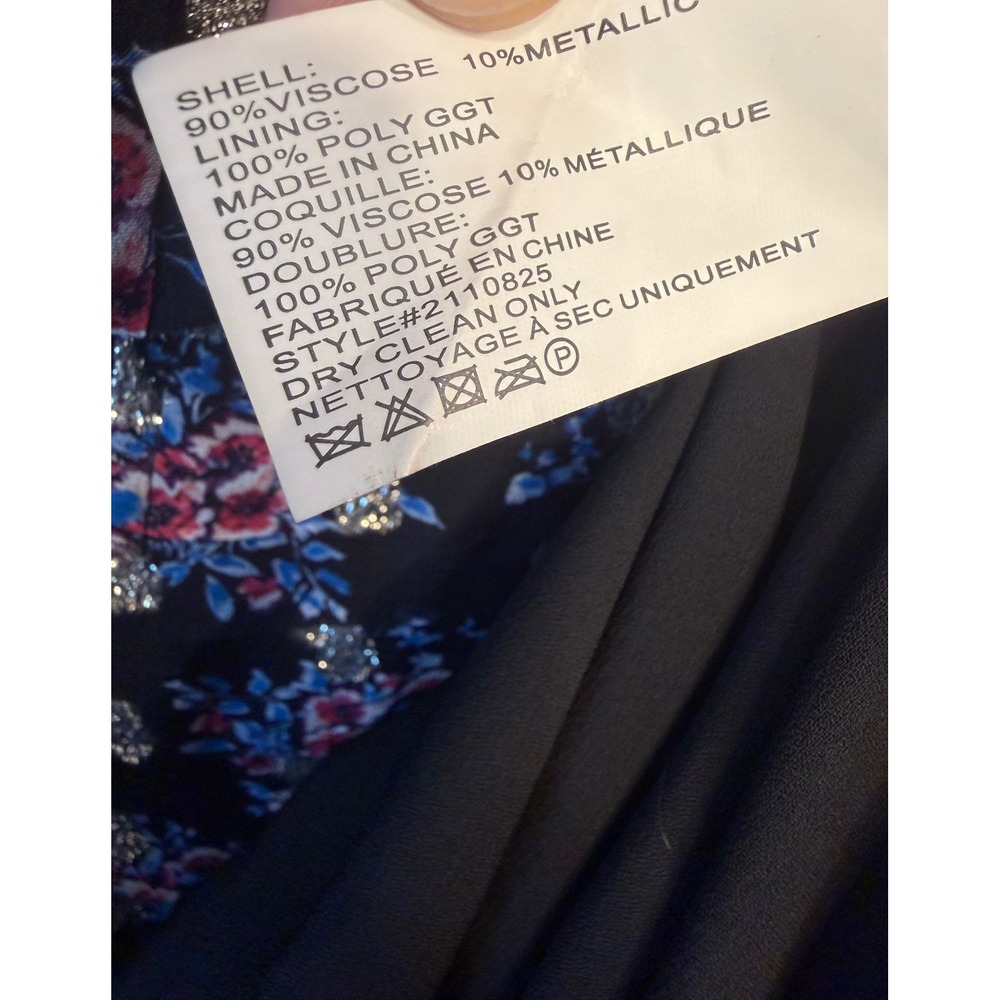 SHELL:
90%VISCOSE 10%METALLIC
LINING:
100% POLY GGT
MADE IN CHINA
COQUILLE:
90% VISCOSE 10% MÉTALLIQUE
DOUBLURE:
100% POLY GGT
FABRIQUÉ EN CHINE
STYLE#2110825
DRY CLEAN ONLY
NETTOYAGE À SEC UNIQUEMENT
P